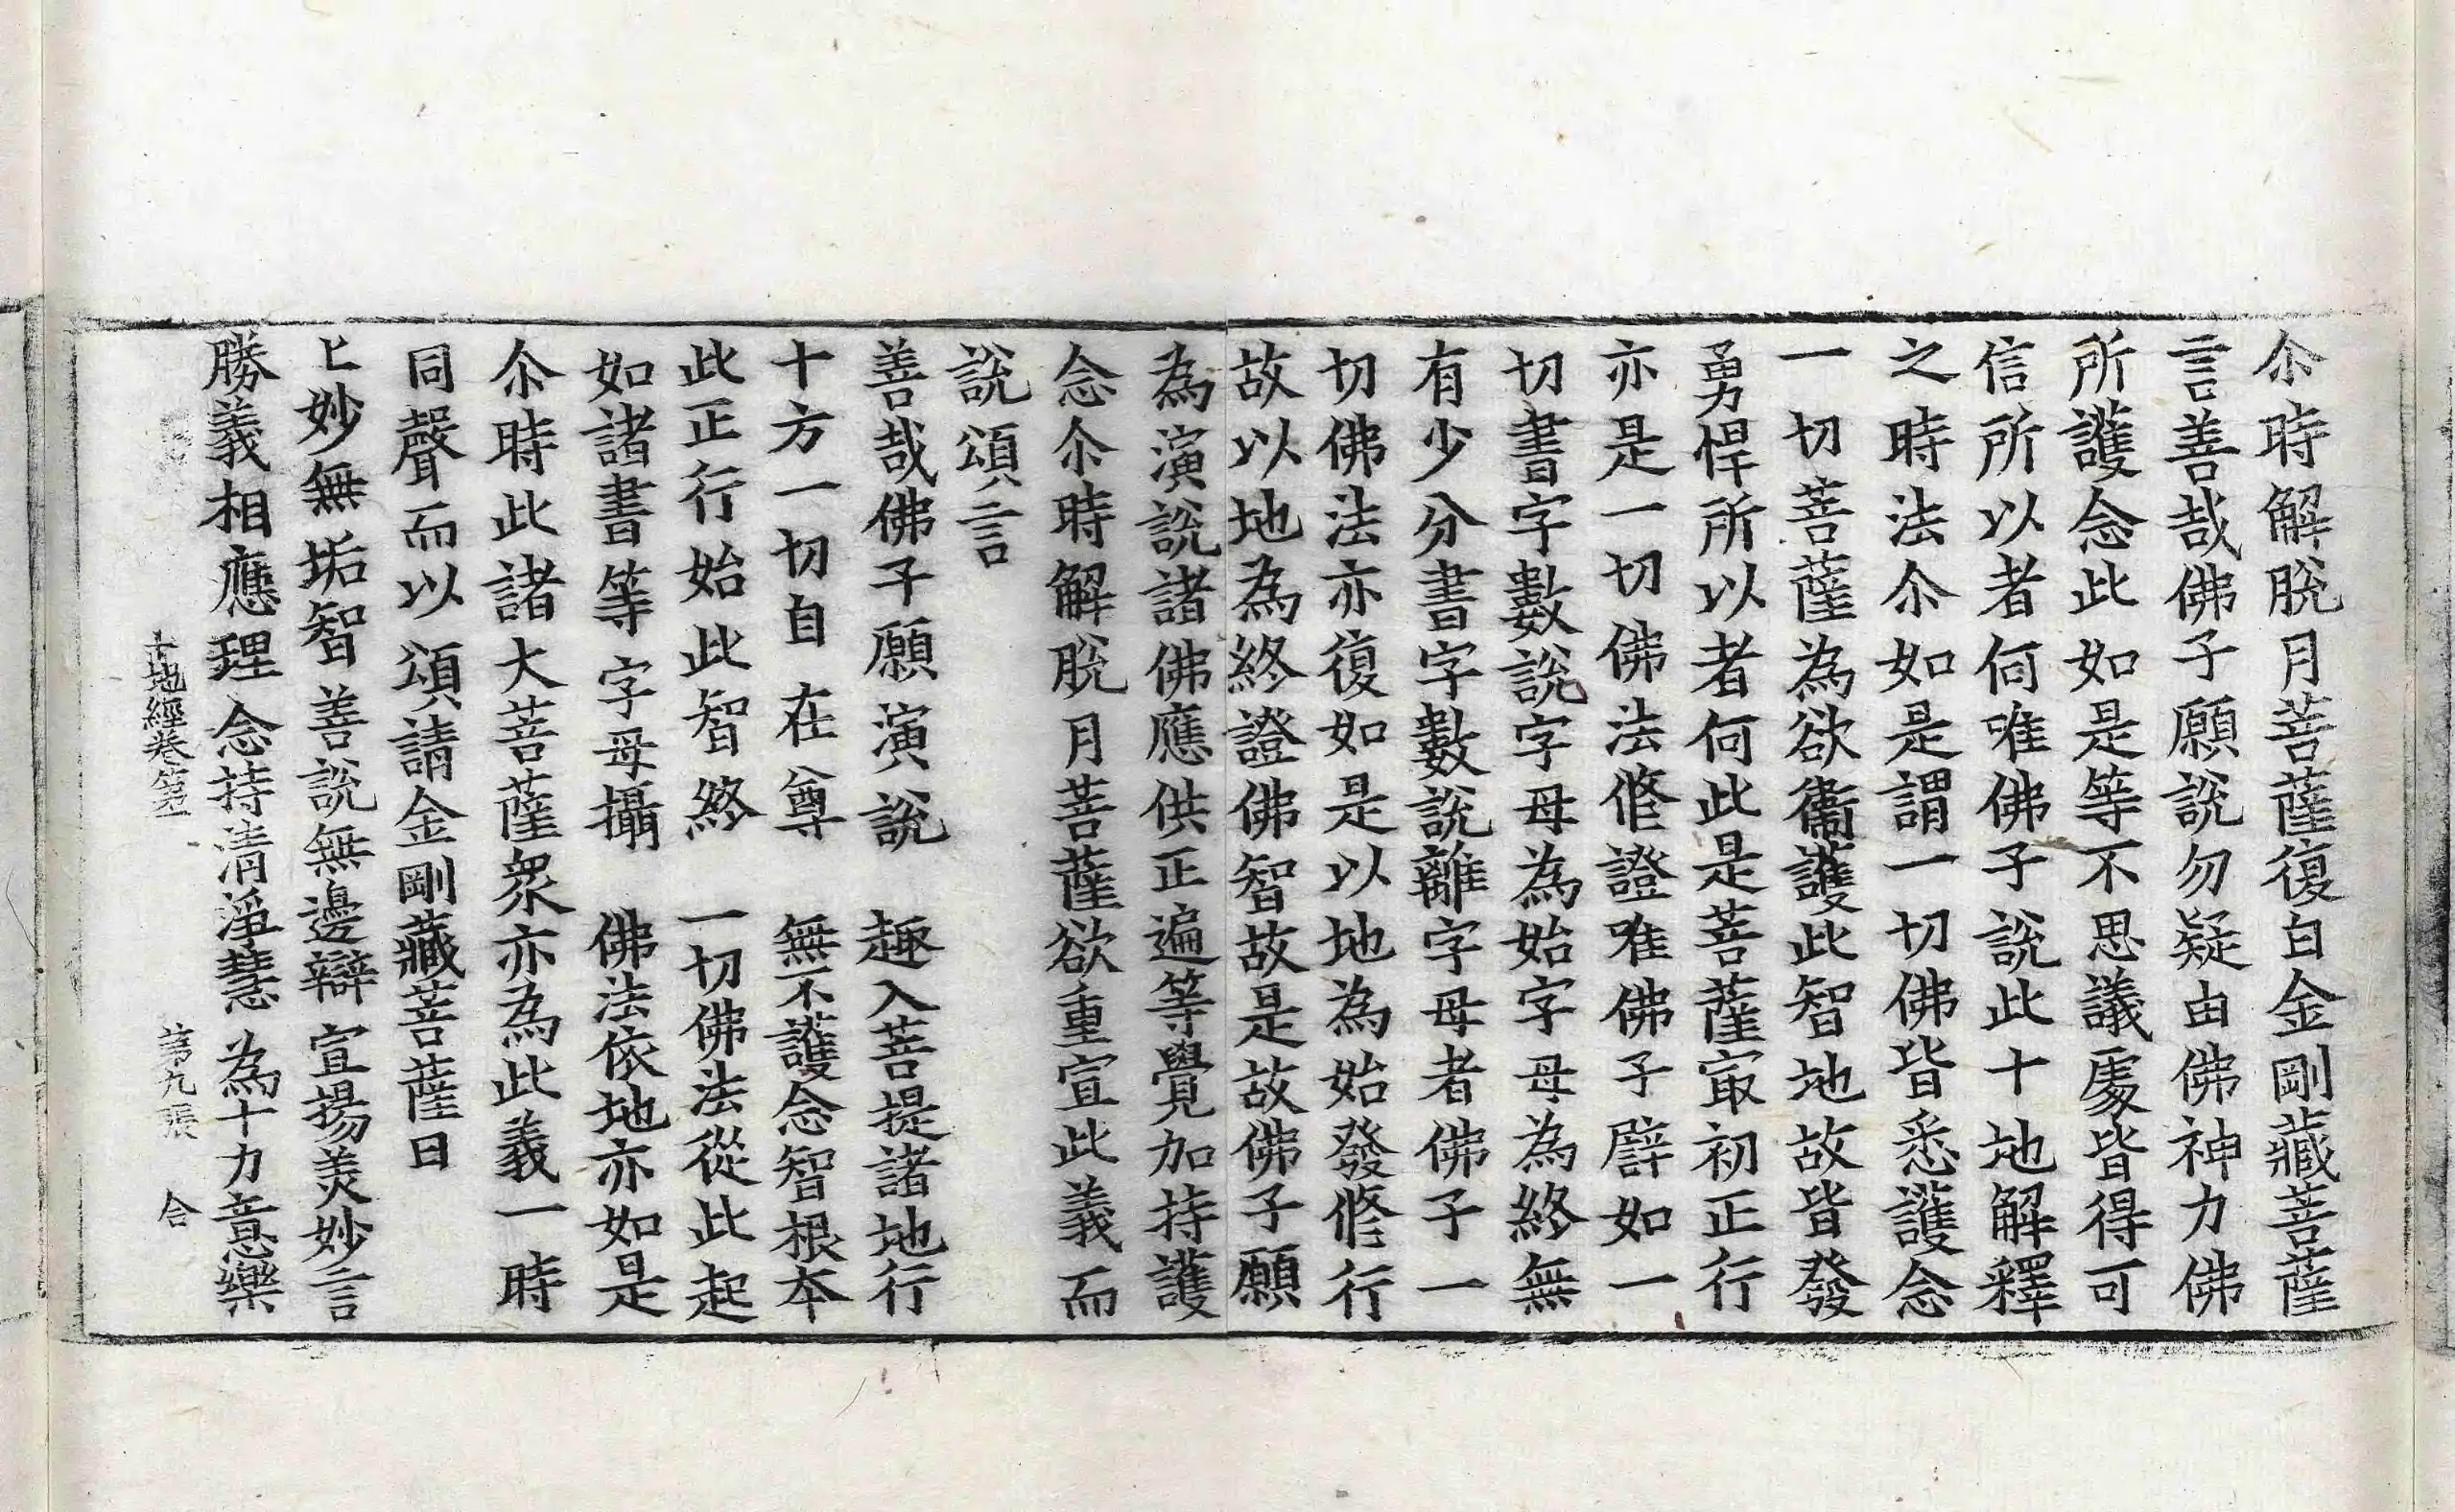 尒時解脫月菩薩復白金剛藏菩薩
言善哉佛子願說勿疑由佛神力佛
所護念此如是等不思議處皆得可
信所以者何唯佛子說此十地解釋
之時法尒如是謂一切佛皆悉護念
一切菩薩為欲衞護此智地故皆發
勇悍所以者何此是菩薩㝡初正行
亦是一切佛法修證唯佛子譬如一
切書字數說字母為始字母為終無
有少分書字數說離字母者佛子一
切佛法亦復如是以地為始發修行
故以地為終證佛智故是故佛子願
為演說諸佛應供正遍等覺加持護
念尒時解脫月菩薩欲重宣此義而
說頌言
善哉佛子願演說　趣入菩提諸地行
十方一切自在尊　無不護念智根本
此正行始此智終　一切佛法從此起
如諸書等字母攝　佛法依地亦如是
尒時此諸大菩薩衆亦為此義一時
同聲而以頌請金剛藏菩薩曰
上妙無垢智　善說無邊辯　宣揚美妙言
勝義相應理　念持清淨慧　為十力意樂
十地經卷第一　第九張　合